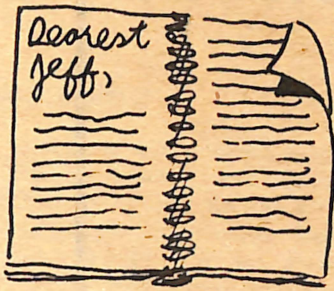 Dearest
Jeff,